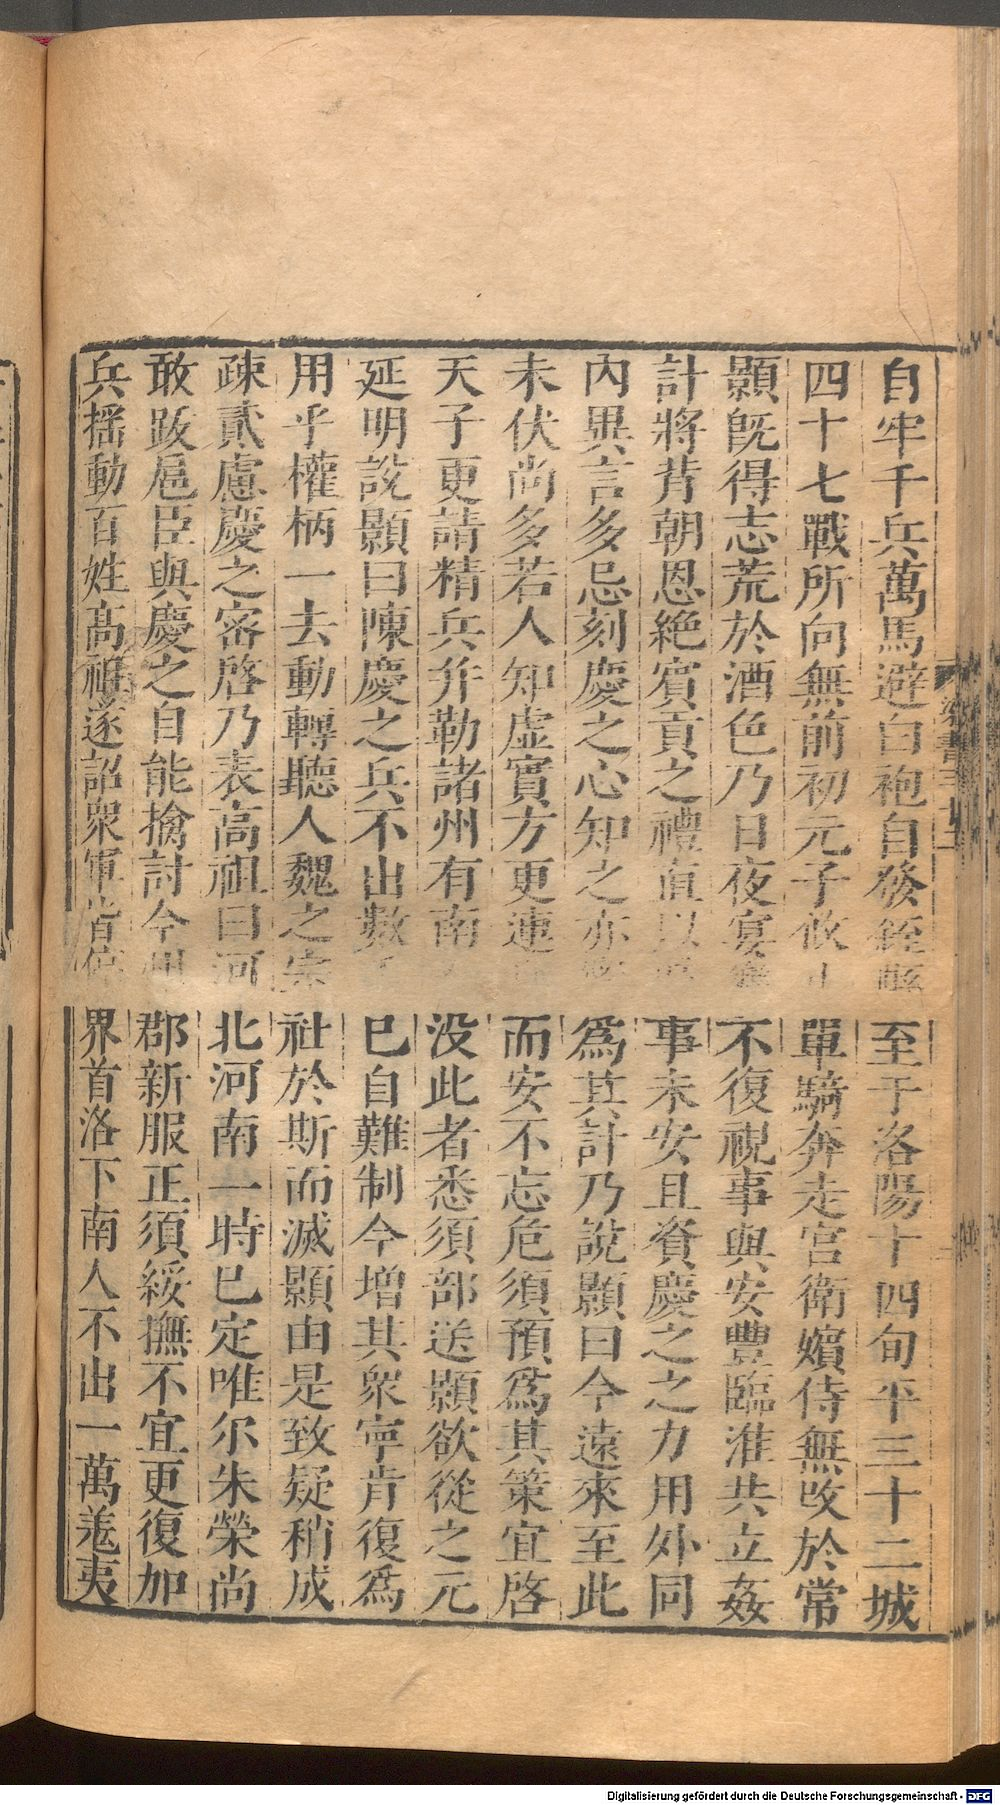 自牢千兵萬馬避白袍自發銍縣至于洛陽十四旬平三十二城
四十七戰所向無前初元子攸止單騎奔走宮衛嬪侍無改於常
顥旣得志荒於酒色乃日夜宴樂不復視事與安豐臨淮共立姦
計將背朝恩絶賓貢之禮直以時事未安且資慶之之力用外同
內異言多忌刻慶之心知之亦密爲其計乃說顥曰今遠來至此
未伏尚多若人知虛實方更連兵而安不忘危須預爲其策宜啓
天子更請精兵并勒諸州有南人没此者悉須部送顥欲從之元
延明說顥曰陳慶之兵不出數千已自難制今增其衆寧肯復爲
用乎權柄一去動轉聽人魏之宗社於斯而滅顥由是致疑稍成
疎貳慮慶之密啓乃表高祖曰河北河南一時已定唯尔朱榮尚
敢跋扈臣與慶之自能擒討今州郡新服正須綏撫不宜更復加
兵揺動百姓高祖遂詔衆軍皆停界首洛下南人不出一萬羌夷
梁書三十二
Digitalisierung gefördert durch die Deutsche Forschungsgemeinschaft - DFG